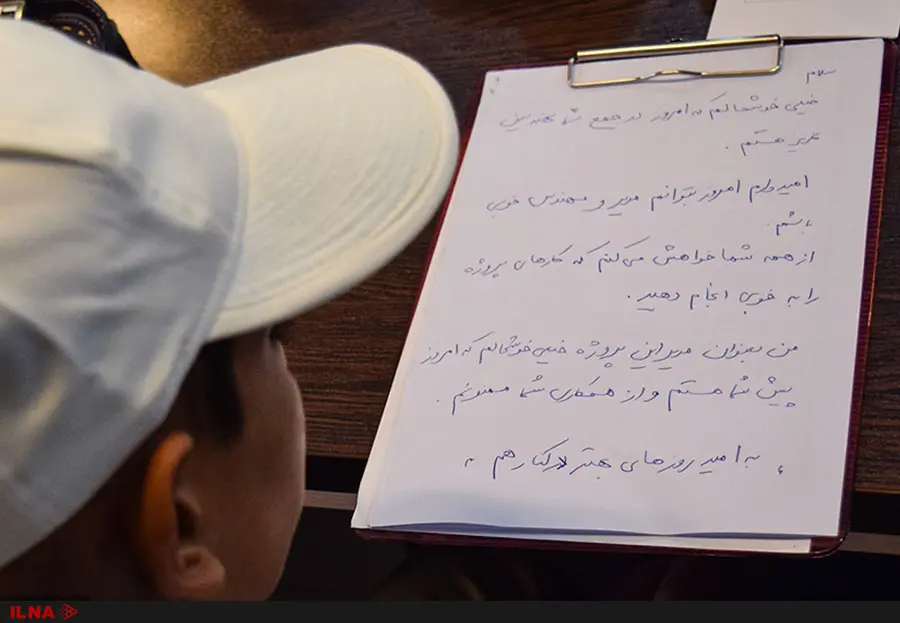 سلام
خیلی خوشحالم که امروز در جمع شما مهندسین
عزیز هستم .
امیدوارم امروز بتوانم مدیر و مهندس خوبی
باشم .
از همه شما خواهش می‌کنم که کارهای پروژه
را به خوبی انجام دهید .
من بعنوان مدیر این پروژه خیلی خوشحالم که امروز
پیش شما هستم و از همکاری شما ممنونم .
به امید روزهای بهتر در کنار هم
ILNA